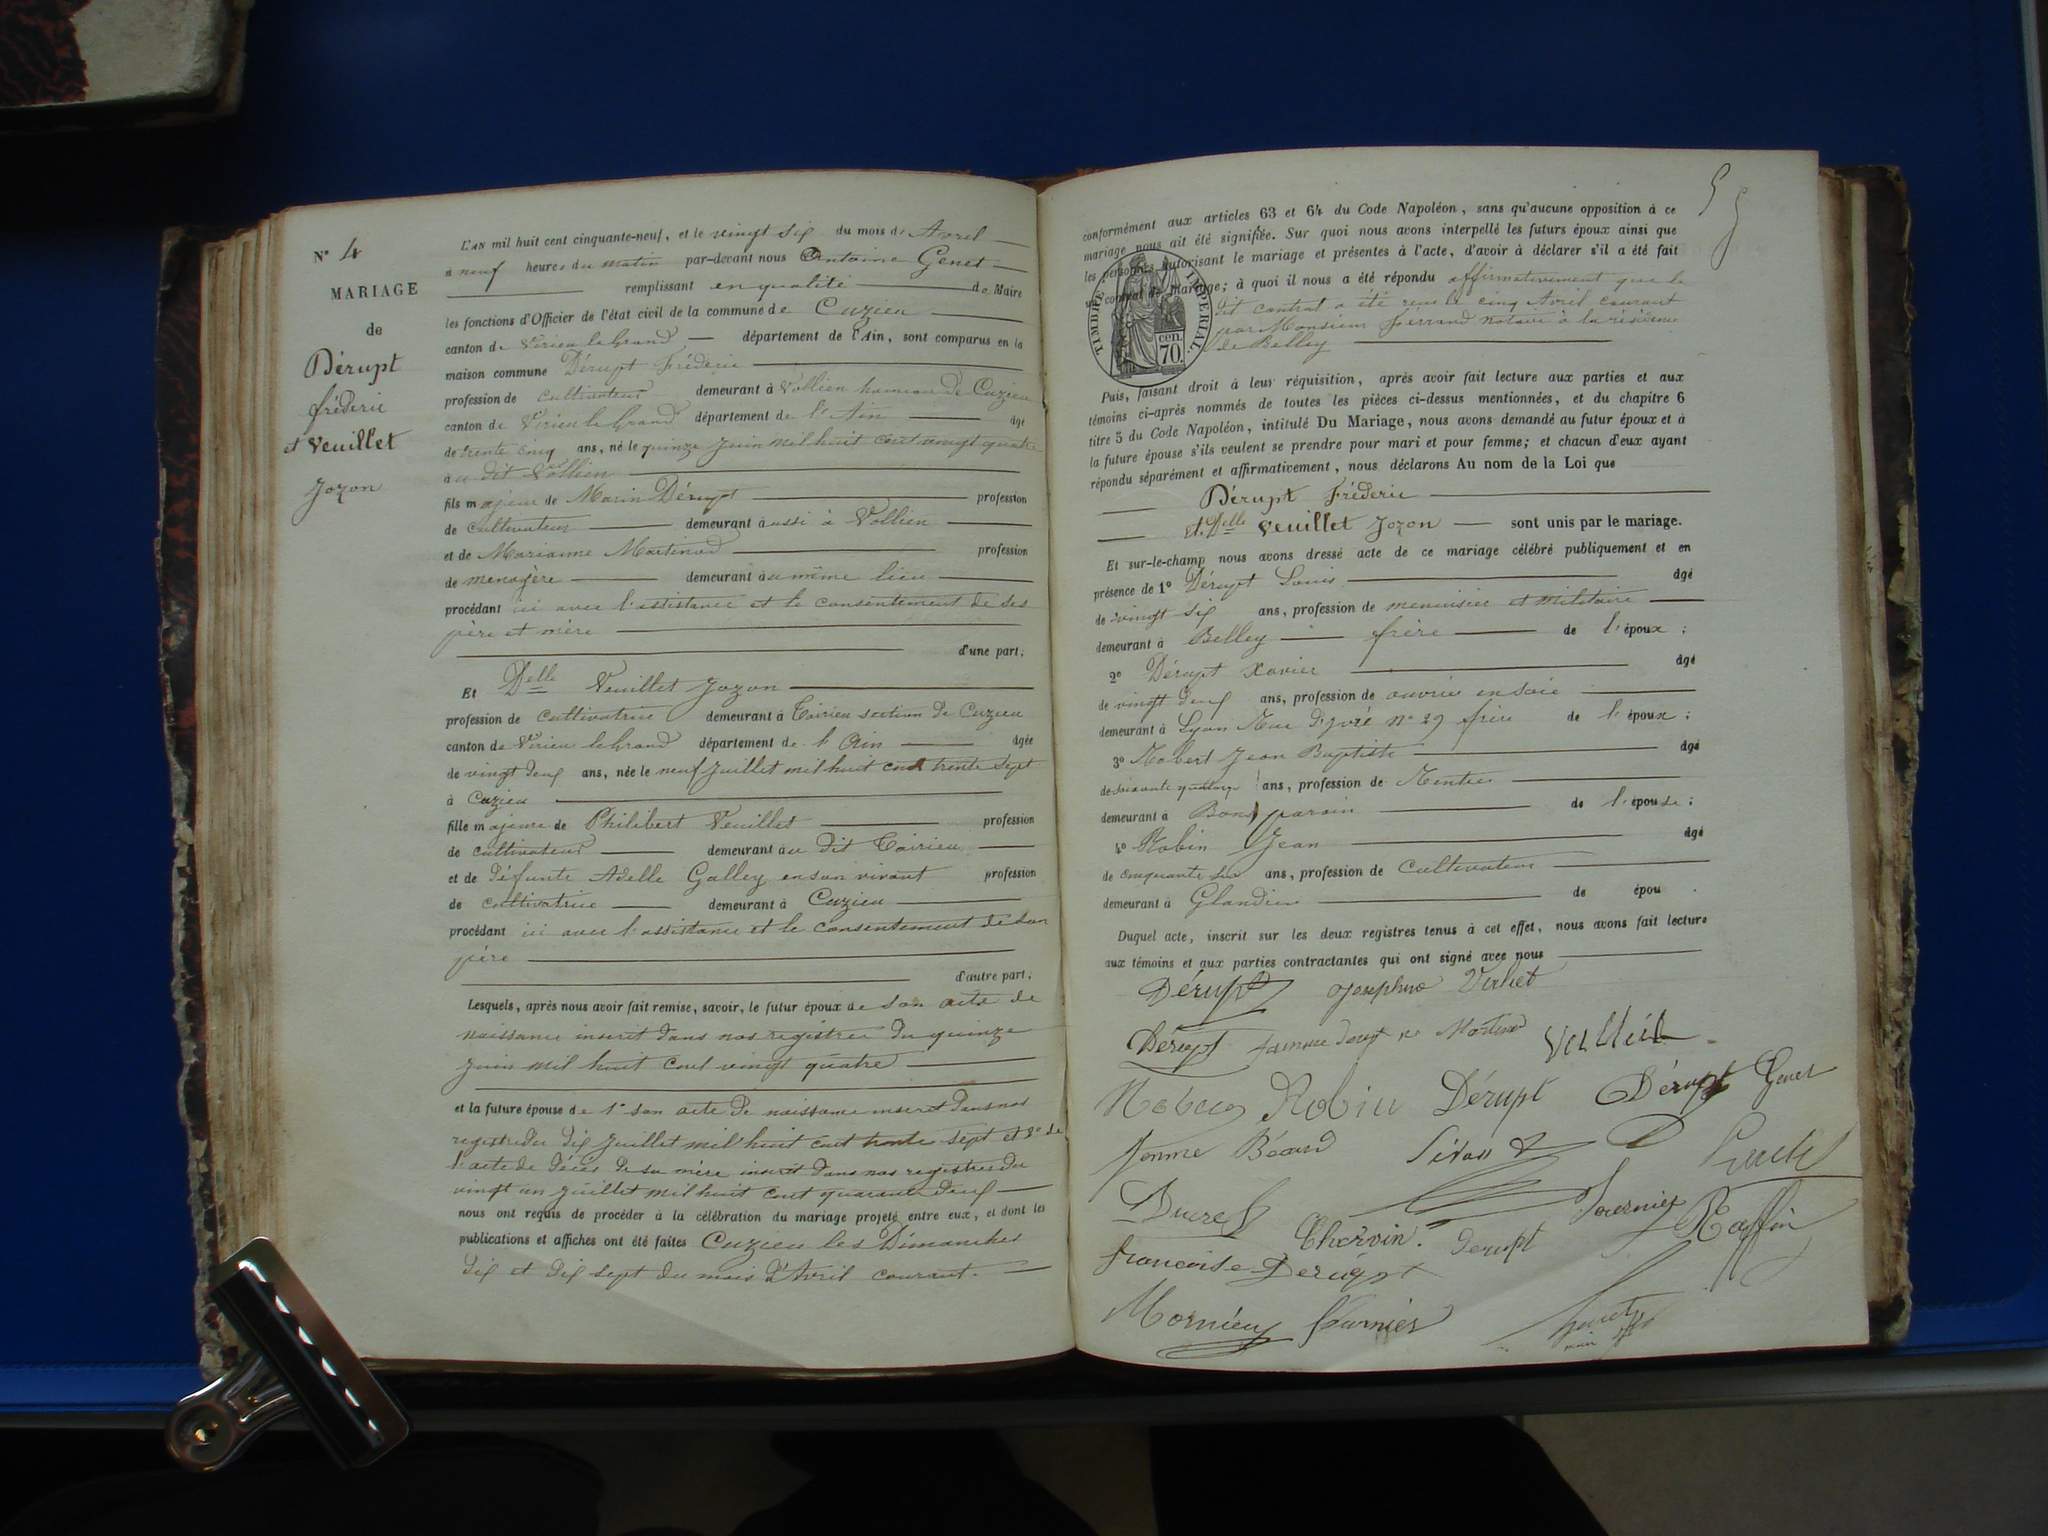 N° 4
MARIAGE
de
Dérupt
fréderic
et Veuillet
Jozon
L'AN mil huit cent cinquante-neuf, et le vingt six du mois d'Avril
à neuf heures du matin par-devant nous Antoine Genet
remplissant en qualité de Maire
les fonctions d'Officier de l'état civil de la commune de Cuzieu
canton de Virieu le Grand département de l'Ain, sont comparus en la
maison commune Dérupt Fréderic
profession de cultivateur demeurant à Vollien hameau de Cuzieu
canton de Virieu le Grand département de l'Ain âgé
de trente cinq ans, né le quinze Juin mil huit cent vingt quatre
au dit Vollien
fils majeur de Marin Dérupt profession
de cultivateur demeurant aussi à Vollien
et de Marianne Martinod profession
de menagère demeurant au même lieu
procédant ici avec l'assistance et le consentement de ses
père et mère
d'une part;
Et Delle Veuillet Jozon
profession de cultivatrice demeurant à section de Cuzieu
canton de Virieu le Grand département de l'Ain âgée
de vingt deux ans, née le neuf Juillet mil huit cent trente sept
à Cuzieu
fille majeure de Philibert Veuillet profession
de cultivateur demeurant au dit
et de défunte Adelle Galley en son vivant profession
de cultivatrice demeurant à Cuzieu
procédant ici avec l'assistance et le consentement de son
père
d'autre part;
Lesquels, après nous avoir fait remise, savoir, le futur époux de son acte de
naissance inscrit dans nos registres du quinze
Juin mil huit cent vingt quatre
et la future épouse de 1° son acte de naissance inscrit dans nos
registres du dix Juillet mil huit cent trente sept et 2° de
l'acte de décès de sa mère inscrit dans nos registres du
vingt un Juillet mil huit cent quarante deux
nous ont requis de procéder à la célébration du mariage projeté entre eux, et dont les
publications et affiches ont été faites Cuzieu les Dimanches
dix et dix sept du mois d'Avril courant.
conformément aux articles 63 et 64 du Code Napoléon, sans qu'aucune opposition à ce
mariage nous ait été signifiée. Sur quoi nous avons interpellé les futurs époux ainsi que
les personnes autorisant le mariage et présentes à l'acte, d'avoir à déclarer s'il a été fait
un contrat de mariage; à quoi il nous a été répondu affirmativement que le
dit contrat a été reçu le cinq Avril courant
par Monsieur Férrand notaire à la résidence
de Belley
TIMBRE IMPERIAL
cen.
70.
Puis, faisant droit à leur réquisition, après avoir fait lecture aux parties et aux
témoins ci-après nommés de toutes les pièces ci-dessus mentionnées, et du chapitre 6
titre 5 du Code Napoléon, intitulé Du Mariage, nous avons demandé au futur époux et à
la future épouse s'ils veulent se prendre pour mari et pour femme; et chacun d'eux ayant
répondu séparément et affirmativement, nous déclarons Au nom de la Loi que
Dérupt Fréderic
et Delle Veuillet Jozon sont unis par le mariage.
Et sur-le-champ nous avons dressé acte de ce mariage célébré publiquement et en
présence de 1° Dérupt Louis âgé
de vingt six ans, profession de menuisier et militaire
demeurant à Belley frère de l'époux;
2° Dérupt Xavier âgé
de vingt deux ans, profession de ouvrier en soie
demeurant à Lyon Rue d'Ivré n° 29 frère de l'époux;
3° Robert Jean Baptiste âgé
de soixante quatorze ans, profession de Rentier
demeurant à Bons parain de l'épouse;
4° Robin Jean âgé
de cinquante six ans, profession de Cultivateur
demeurant à Glandieu de épou .
Duquel acte, inscrit sur les deux registres tenus à cet effet, nous avons fait lecture
aux témoins et aux parties contractantes qui ont signé avec nous
Dérupt Josephine
Dérupt femme Derupt née Martinod
Robin Dérupt Dérupt Genet
femme Béard
Ducret Fournier
Chervin. Derupt Raffin
francoise Derupt
Mornieux Fournier